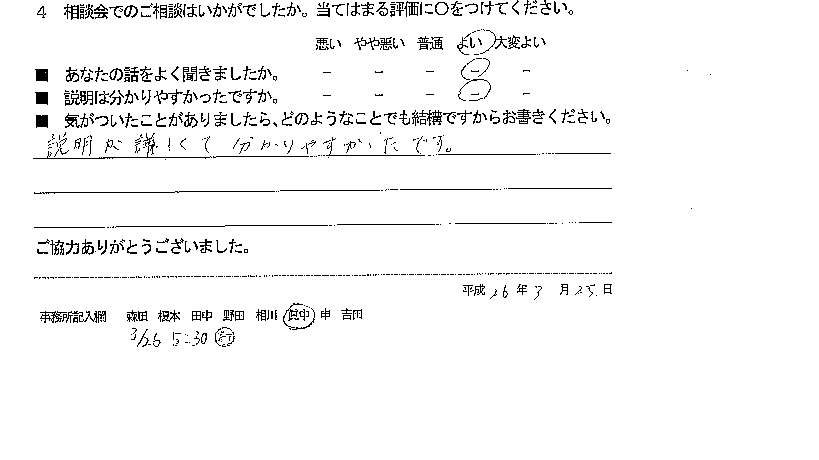 4 相談会でのご相談はいかがでしたか。当てはまる評価に〇をつけてください。
悪い やや悪い 普通 よい 大変よい
■ あなたの話をよく聞きましたか。 − − − − −
■ 説明は分かりやすかったですか。 − − − − −
■ 気がついたことがありましたら、どのようなことでも結構ですからお書きください。
説明が詳しくて分かりやすかったです。
ご協力ありがとうございました。
平成 26 年 3 月 25 日
事務所記入欄 森田 榎本 田中 野田 相川 田中 申 吉田
3/26 5:30